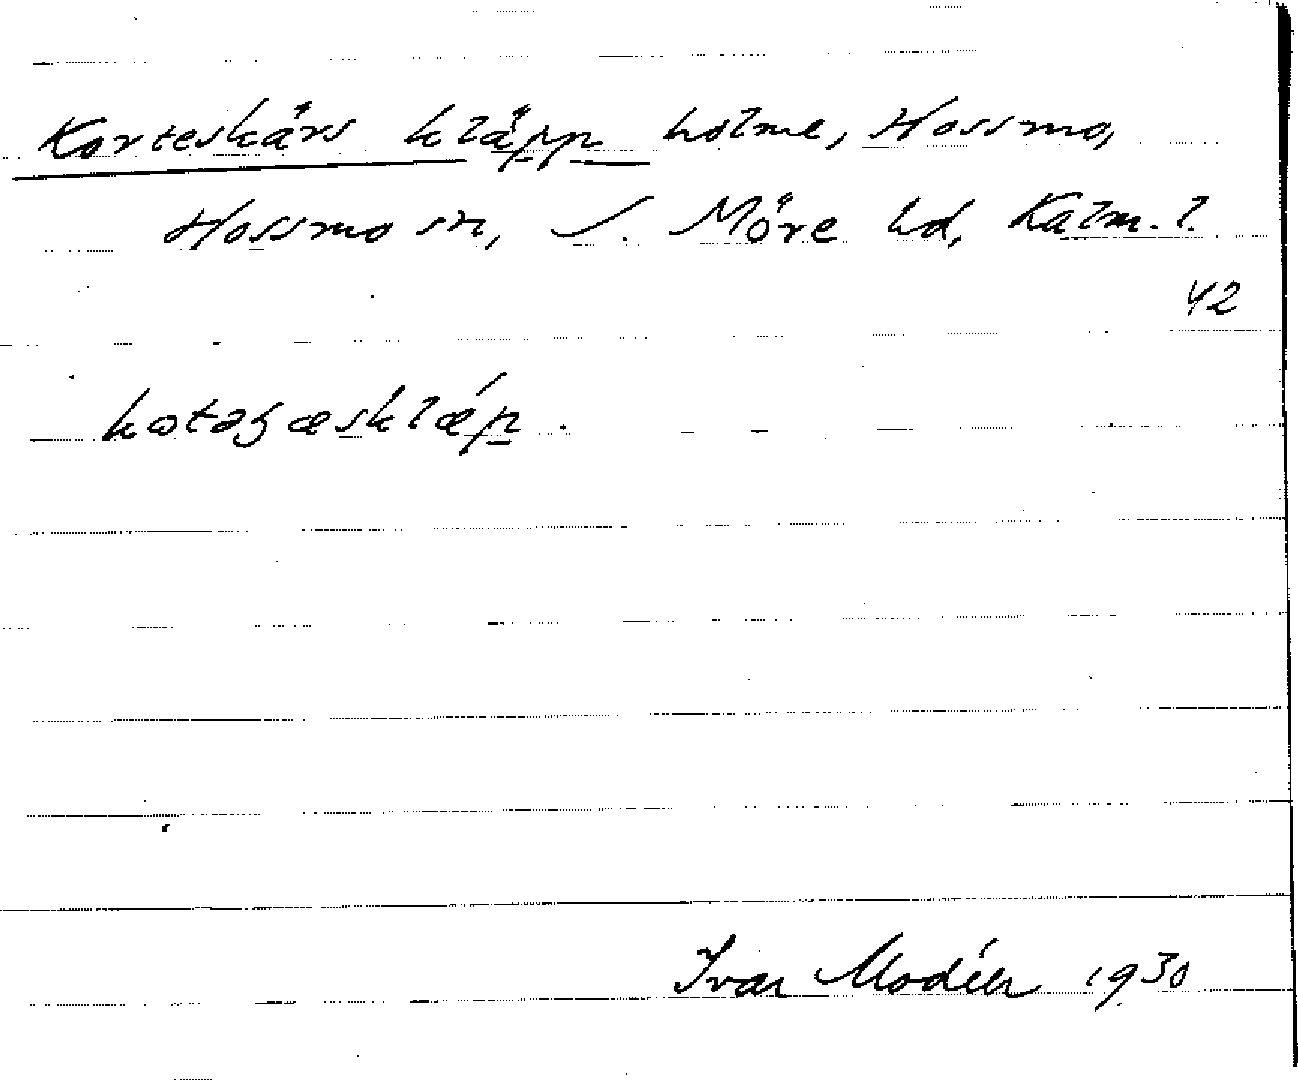 Korteskärs kläpp holme, Hossmo,
Hossmo sn, S. Möre hd, Kalm. l.
42
kotəʒæsklǽp.
Ivar Modéer 1930